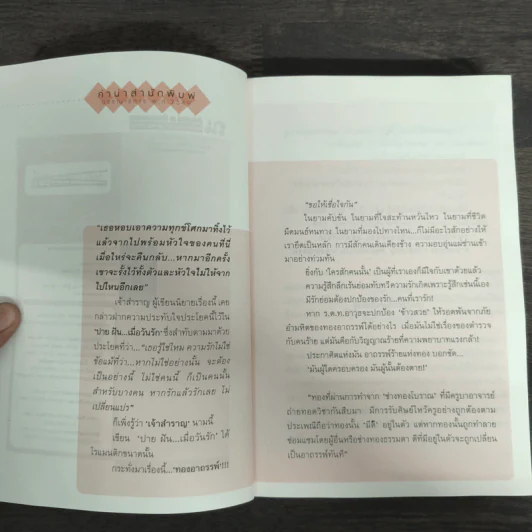 คำนำสำนักพิมพ์
"เธอหอบเอาความทุกข์โศกมาทิ้งไว้
แล้วจากไปพร้อมหัวใจของคนที่นี่
เมื่อไหร่จะคืนกลับ...หากมาอีกครั้ง
เขาจะรั้งไว้ทั้งตัวและหัวใจไม่ให้จาก
ไปไหนอีกเลย"
เจ้าสำราญ ผู้เขียนนิยายเรื่องนี้ เคย
กล่าวฝากความประทับใจประโยคนี้ไว้ใน
'ปาย ฝัน...เมื่อวันรัก' ซึ่งสำทับตามมาด้วย
ประโยคที่ว่า..."เธอรู้ใช่ไหม ความรักไม่ใช่
ข้อแม้ที่ว่า...หากไม่ใช่อย่างนั้น จะต้อง
เป็นอย่างนี้ ไม่ใช่คนนี้ ก็เป็นคนนั้น
สำหรับบางคน หากรักแล้วรักเลย ไม่
เปลี่ยนแปร"
ก็เพิ่งรู้ว่า 'เจ้าสำราญ' นามนี้
เขียน 'ปาย ฝัน...เมื่อวันรัก' ได้
โรแมนติกขนาดนั้น
กระทั่งมาเรื่องนี้...'ทองอาถรรพ์'!!!
"ขอให้เชื่อใจกัน"
ในยามคับขัน ในยามที่ใจสะท้านหวั่นไหว ในยามที่ชีวิต
มืดมนย์หนทาง ในยามที่มองไปทางไหน...ก็ไม่มีใครสักอย่างให้
เรายึดเป็นหลัก การมีสักคนเดินเคียงข้าง ความอบอุ่นแม่ซ่านเข้า
มาอย่างท่วมท้น
ยิ่งกับ 'ใครสักคนนั้น' เป็นผู้ที่เราเองก็มีใจกับเขาด้วยแล้ว
ความรู้สึกลึกเร้นย่อมทับทวีความรักเกิดเพราะรู้สึกเช่นนี้เอง
มีรักย่อมต้องปกป้องของรัก...คนที่เรารัก!
หาก ร.ต.ท.อาวุธจะปกป้อง 'ข้าวสวย' ให้รอดพ้นจากภัย
อำมหิตของทองอาถรรพ์ได้อย่างไร เมื่อมันไม่ใช่เรื่องของตำรวจ
กับคนร้าย แต่มันคือกับวิญญาณร้ายที่ความพยาบาทแรงกล้า!
ประกาศิตแห่งมัน อาถรรพ์ร้ายแห่งทอง บอกชัด...
'มันผู้ใดครอบครอง มันผู้นั้นต้องตาย!'
"ทองที่ผ่านการทำจาก 'ช่างทองโบราณ' ที่มีครูบาอาจารย์
ถ่ายทอดวิชากันสืบมา มีการรับศิษย์ไหว้ครูอย่างถูกต้องตาม
ประเพณีถือว่าทองนั้น 'มีดี' อยู่ในตัว แต่หากทองนั้นถูกทำลาย
ซ่อมแซมโดยผู้อื่นหรือช่างทองธรรมดา ดีที่มีอยู่ในตัวจะถูกเปลี่ยน
เป็นอาถรรพ์ทันที"